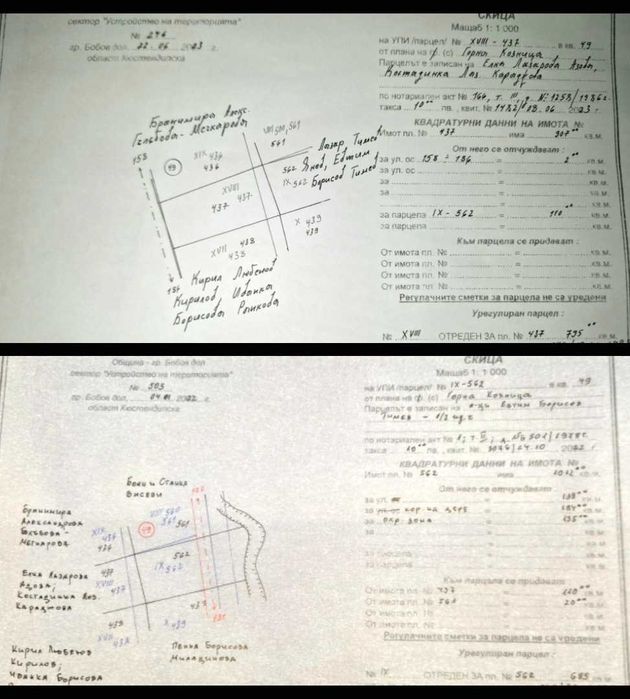 сектор "Устройство на територията"
№ 246
гр. Бобов дол, 22.06 2023 г.
област Кюстендилска
Бранимира Алекс.
Гълъбова - Мегкарова
158
49
XIX 436
436
VIII 560,561
561
Лазар Тимев
562 Янев, Евтим
IX 562 Борисов Тимев
XVIII
437 437
X 439
439
XVII 438
438
136
Кирил Любенов
Кирилов Иванка
Борисова
СКИЦА
Мащаб 1: 1 000
на УПИ /парцел/ № XVIII - 437 в кв. 49
от плана на ф. (с) Горна Козница
Парцелът е записан на Елка Лазарова Азова,
Костадинка Лаз.
по нотариален акт № 164, т. III, д. № 1258/1986г.
такса 10 лв., квит. № 09.06 2023 г.
КВАДРАТУРНИ ДАННИ НА ИМОТА №
Имот пл. № 437 има 907 кв.м.
От него се отчуждават :
за ул. ос 158 ÷ 136 = 2 кв. м.
за ул. ос = кв.м.
за = кв.м.
за = кв.м.
за парцела IX - 562 = 110 кв.м.
за парцела = кв.м.
Към парцела се придават :
От имота пл. № = кв.м.
От имота пл. № = кв.м.
От имота пл. № = кв.м.
От имота пл. № = кв.м.
Регулачните сметки за парцела не са уредени
Урегулиран парцел :
№ XVIII ОТРЕДЕН ЗА пл. № 437 795 кв.м.
Община - гр. Бобов дол
сектор "Устройство на територията"
№ 503
гр. Бобов дол, 04.11 2022 г.
област Кюстендилска
Бони и Станка
Висеви
Бранимира
Александрова
Гълъбова -
Мегкарова
49
VIII 560
561 561
XIX
436
436
562
IX
562
Елка Лазарова
Азова;
Костадинка Лаз.
437
XVIII
437
438
439
X 439
XVII 438
Кирил Любенов
Кирилов;
Иванка Борисова
Пенка Борисова
Миладинова
СКИЦА
Мащаб 1: 1 000
на УПИ /парцел/ № IX-562 в кв. 49
от плана на ф. (с) Горна Козница
Парцелът е записан на н-ци Евтим Борисов
Тимев - 1/2 ид.ч
по нотариален акт № 1; т. II; д. № 501/1978г.
такса 10 лв., квит. № 2022 г.
КВАДРАТУРНИ ДАННИ НА ИМОТА №
Имот пл. № 562 има 1012 кв.м.
От него се отчуждават :
за ул. = 138 кв.м.
за = кв.м.
за окр. зона = 135 кв.м.
за = кв.м.
за парцела = кв.м.
за парцела = кв.м.
Към парцела се придават :
От имота пл. № 437 = 110 кв.м.
От имота пл. № 561 = 20 кв.м.
От имота пл. № = кв.м.
От имота пл. № = кв.м.
Регулачните сметки за парцела не са уредени
Урегулиран парцел :
№ IX ОТРЕДЕН ЗА пл. № 562 685 кв.м.